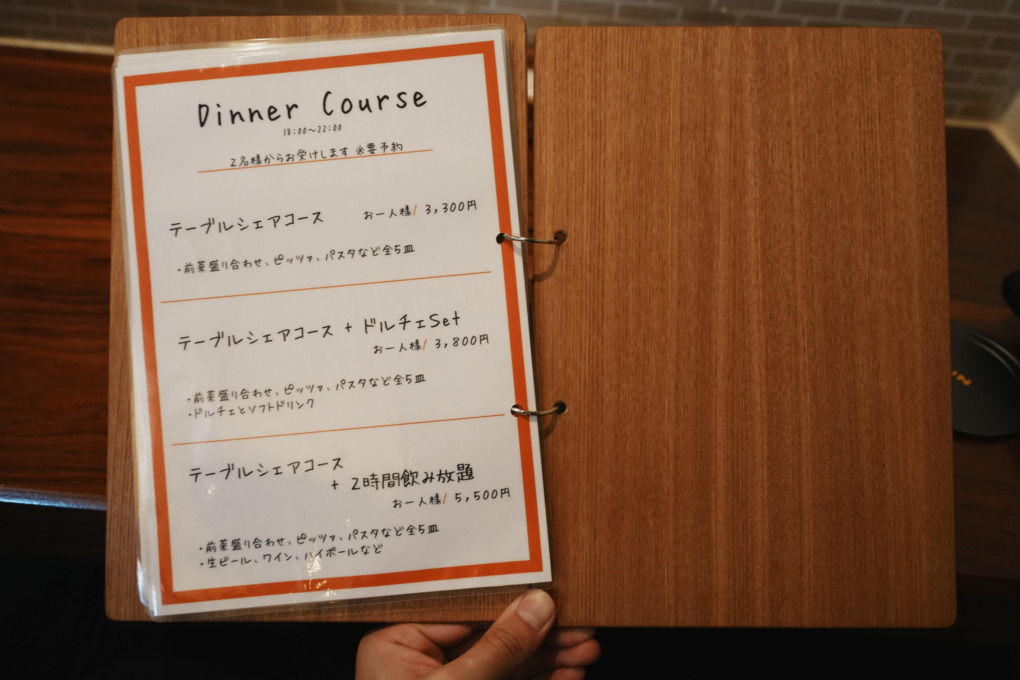 Dinner Course
18:00～22:00
2名様からお受けします ※要予約
テーブルシェアコース お一人様/ 3,300円
・前菜盛り合わせ、ピッツァ、パスタなど全5皿
テーブルシェアコース + ドルチェSet
お一人様/ 3,800円
・前菜盛り合わせ、ピッツァ、パスタなど全5皿
・ドルチェとソフトドリンク
テーブルシェアコース
+ 2時間飲み放題
お一人様/ 5,500円
・前菜盛り合わせ、ピッツァ、パスタなど全5皿
・生ビール、ワイン、ハイボールなど